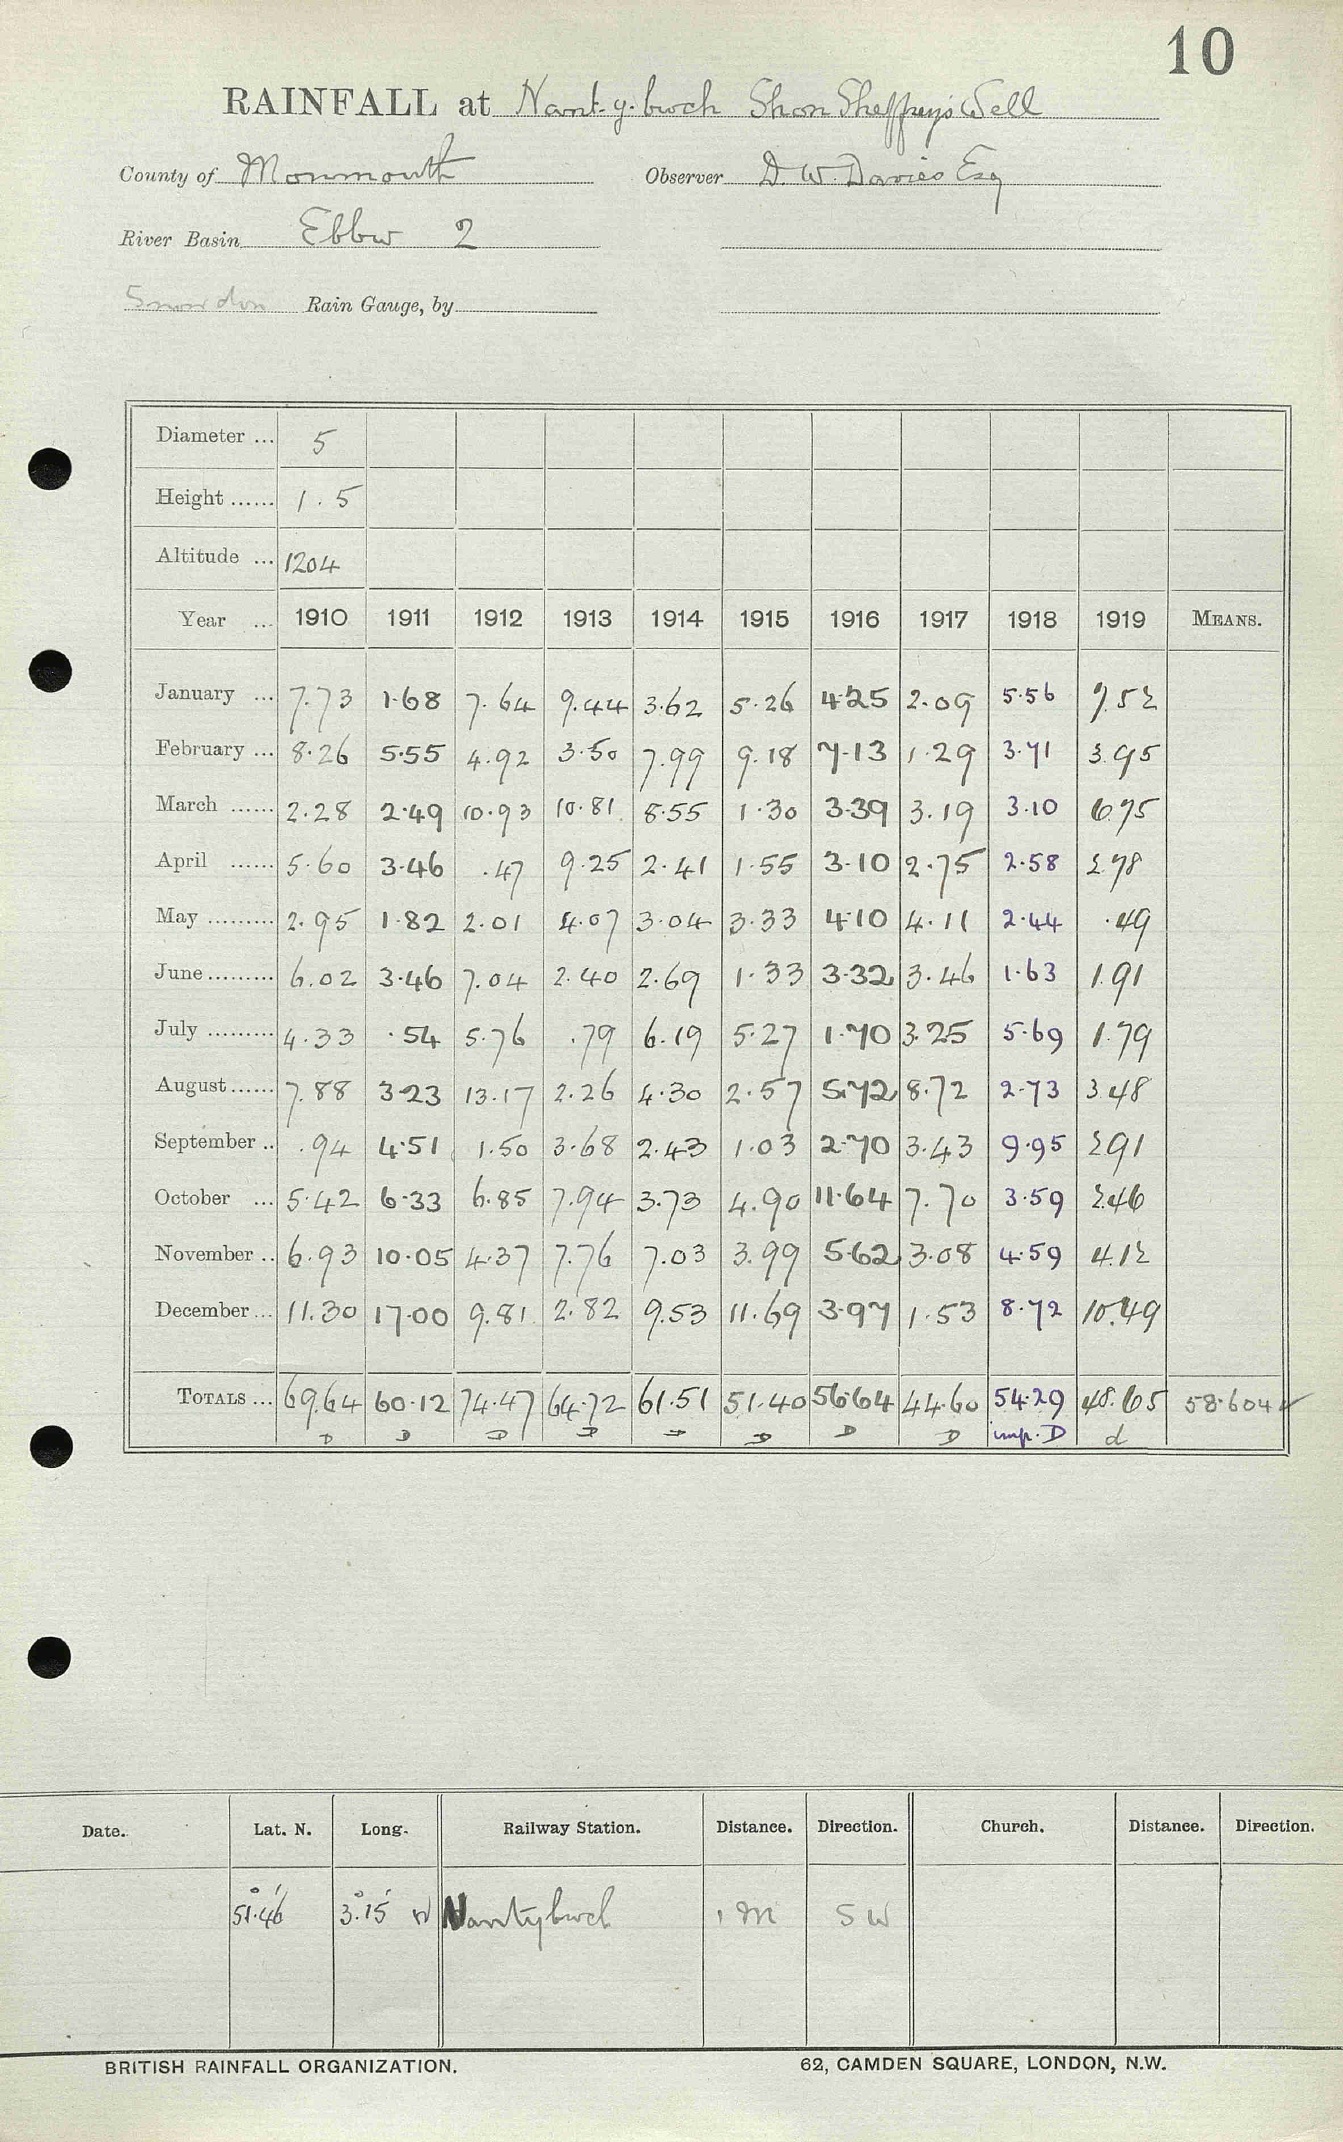 10
RAINFALL at Nant-y-bwch Shon Sheffrey's Well
County of Monmouth Observer D. W. Davies Esq
River Basin Ebbw 2
Snowdon Rain Gauge, by
Diameter ... 5
Height ...... 1.5
Altitude ... 1204
Year ... 1910 1911 1912 1913 1914 1915 1916 1917 1918 1919 MEANS.
January ... 7.73 1.68 7.64 9.44 3.62 5.26 4.25 2.09 5.56 7.52
February ... 8.26 5.55 4.92 3.50 7.99 9.18 7.13 1.29 3.71 3.95
March ...... 2.28 2.49 10.93 10.81 8.55 1.30 3.39 3.19 3.10 6.75
April ...... 5.60 3.46 .47 9.25 2.41 1.55 3.10 2.75 2.58 2.78
May ......... 2.95 1.82 2.01 4.07 3.04 3.33 4.10 4.11 2.44 .49
June ......... 6.02 3.46 7.04 2.40 2.69 1.33 3.32 3.46 1.63 1.91
July ......... 4.33 .54 5.76 .79 6.19 5.27 1.70 3.25 5.69 1.79
August ...... 7.88 3.23 13.17 2.26 4.30 2.57 5.72 8.72 2.73 3.48
September .. .94 4.51 1.50 3.68 2.43 1.03 2.70 3.43 9.95 2.91
October ... 5.42 6.33 6.85 7.94 3.73 4.90 11.64 7.70 3.59 2.46
November .. 6.93 10.05 4.37 7.76 7.03 3.99 5.62 3.08 4.59 4.12
December ... 11.30 17.00 9.81 2.82 9.53 11.69 3.97 1.53 8.72 10.49
TOTALS ... 69.64 60.12 74.47 64.72 61.51 51.40 56.64 44.60 54.29 48.65 58.604 ✓
D D D D D D D D imp. D d
Date. Lat. N. Long. Railway Station. Distance. Direction. Church. Distance. Direction.
51°.46' 3°.15' W Nantybwch 1 M SW
BRITISH RAINFALL ORGANIZATION. 62, CAMDEN SQUARE, LONDON, N.W.